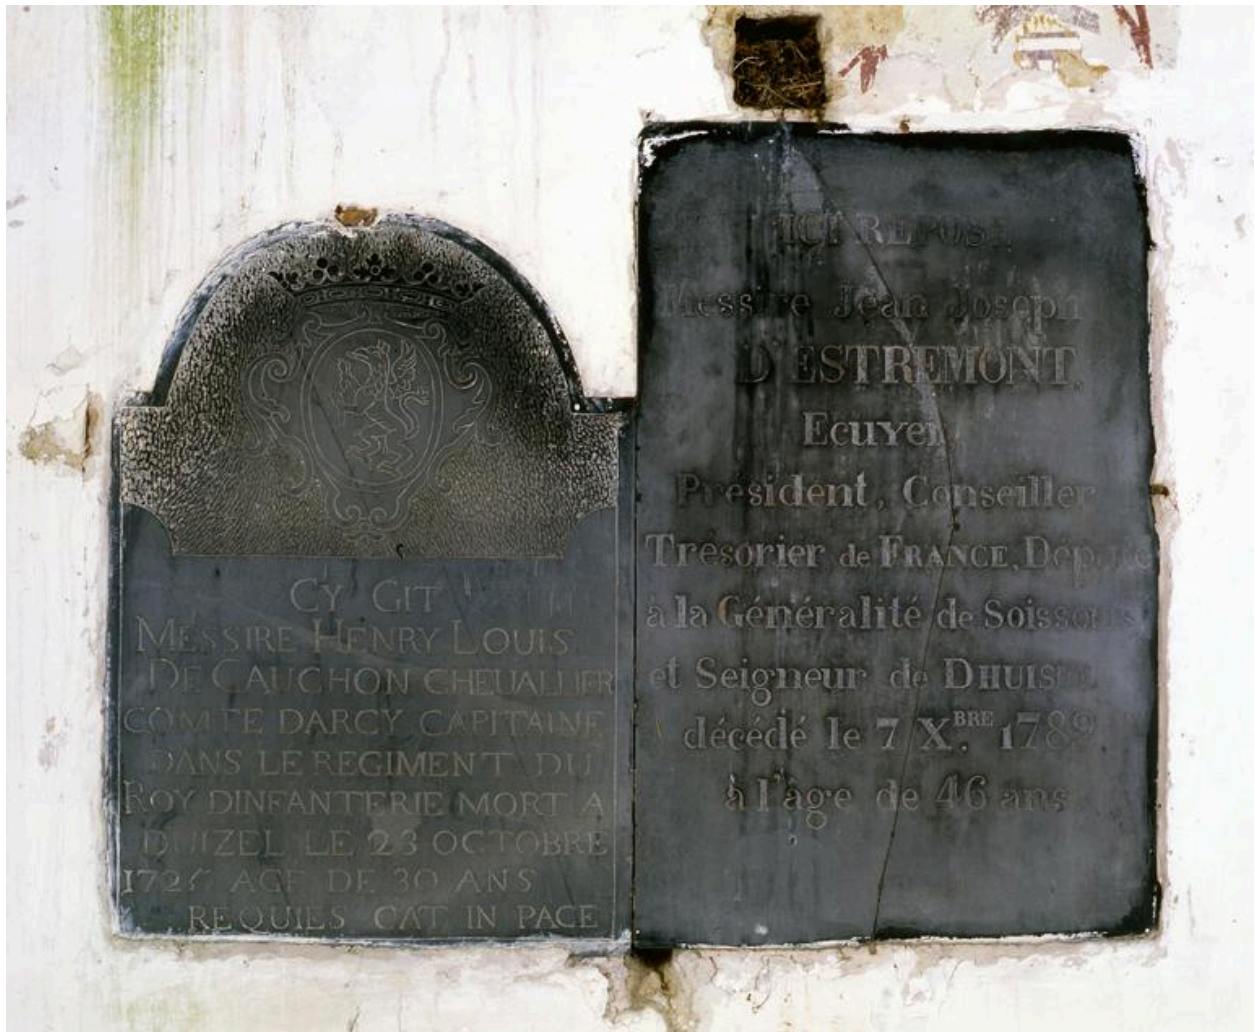 CY GIT
MESSIRE HENRY LOUIS
DE CAUCHON CHEUALLIER
COMTE DARCY CAPITAINE
DANS LE REGIMENT DU
ROY DINFANTERIE MORT A
DUIZEL LE 23 OCTOBRE
AGE DE 30 ANS
REQUIES CAT IN PACE
ICI REPOSE
Messire Jean Joseph
D'ESTREMONT.
Ecuyer
Président, Conseiller
Trésorier de FRANCE, Député
à la Généralité de Soissons
et Seigneur de
décédé le 7 X.BRE 1789
à l'âge de 46 ans